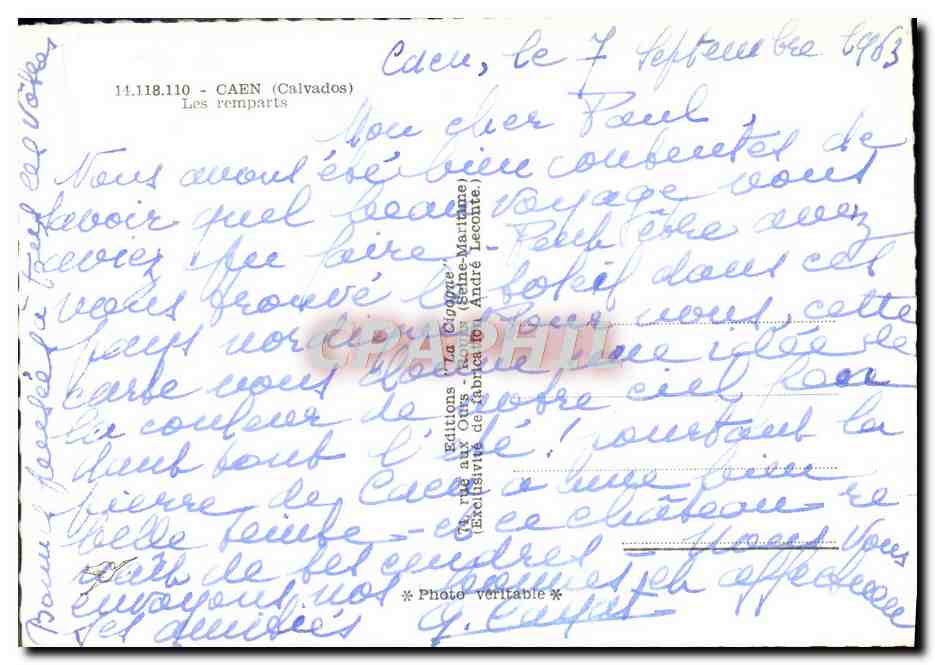 Caen, le 7 Septembre 1963
14.118.110 - CAEN (Calvados)
Les remparts
Mon cher Paul,
Nous avons été bien contentes de
savoir quel beau voyage vous
aviez pu faire - Peut être avez
vous trouvé le soleil dans ces
pays nordiques. Pour nous, cette
carte vous donne une idée de
la couleur de notre ciel pen
dant tout l'été ! pourtant la
pierre de Caen a une bien
belle teinte - et ce château re
naît de ses cendres - Nous vous
envoyons nos bonnes et affectueu
ses amitiés
Bonne à Tous les Vôtres
Editions "La Cigogne"
74, rue aux Ours - ROUEN (Seine-Maritime)
(Exclusivité de fabrication André Leconte.)
* Photo véritable *
CPAPHIL